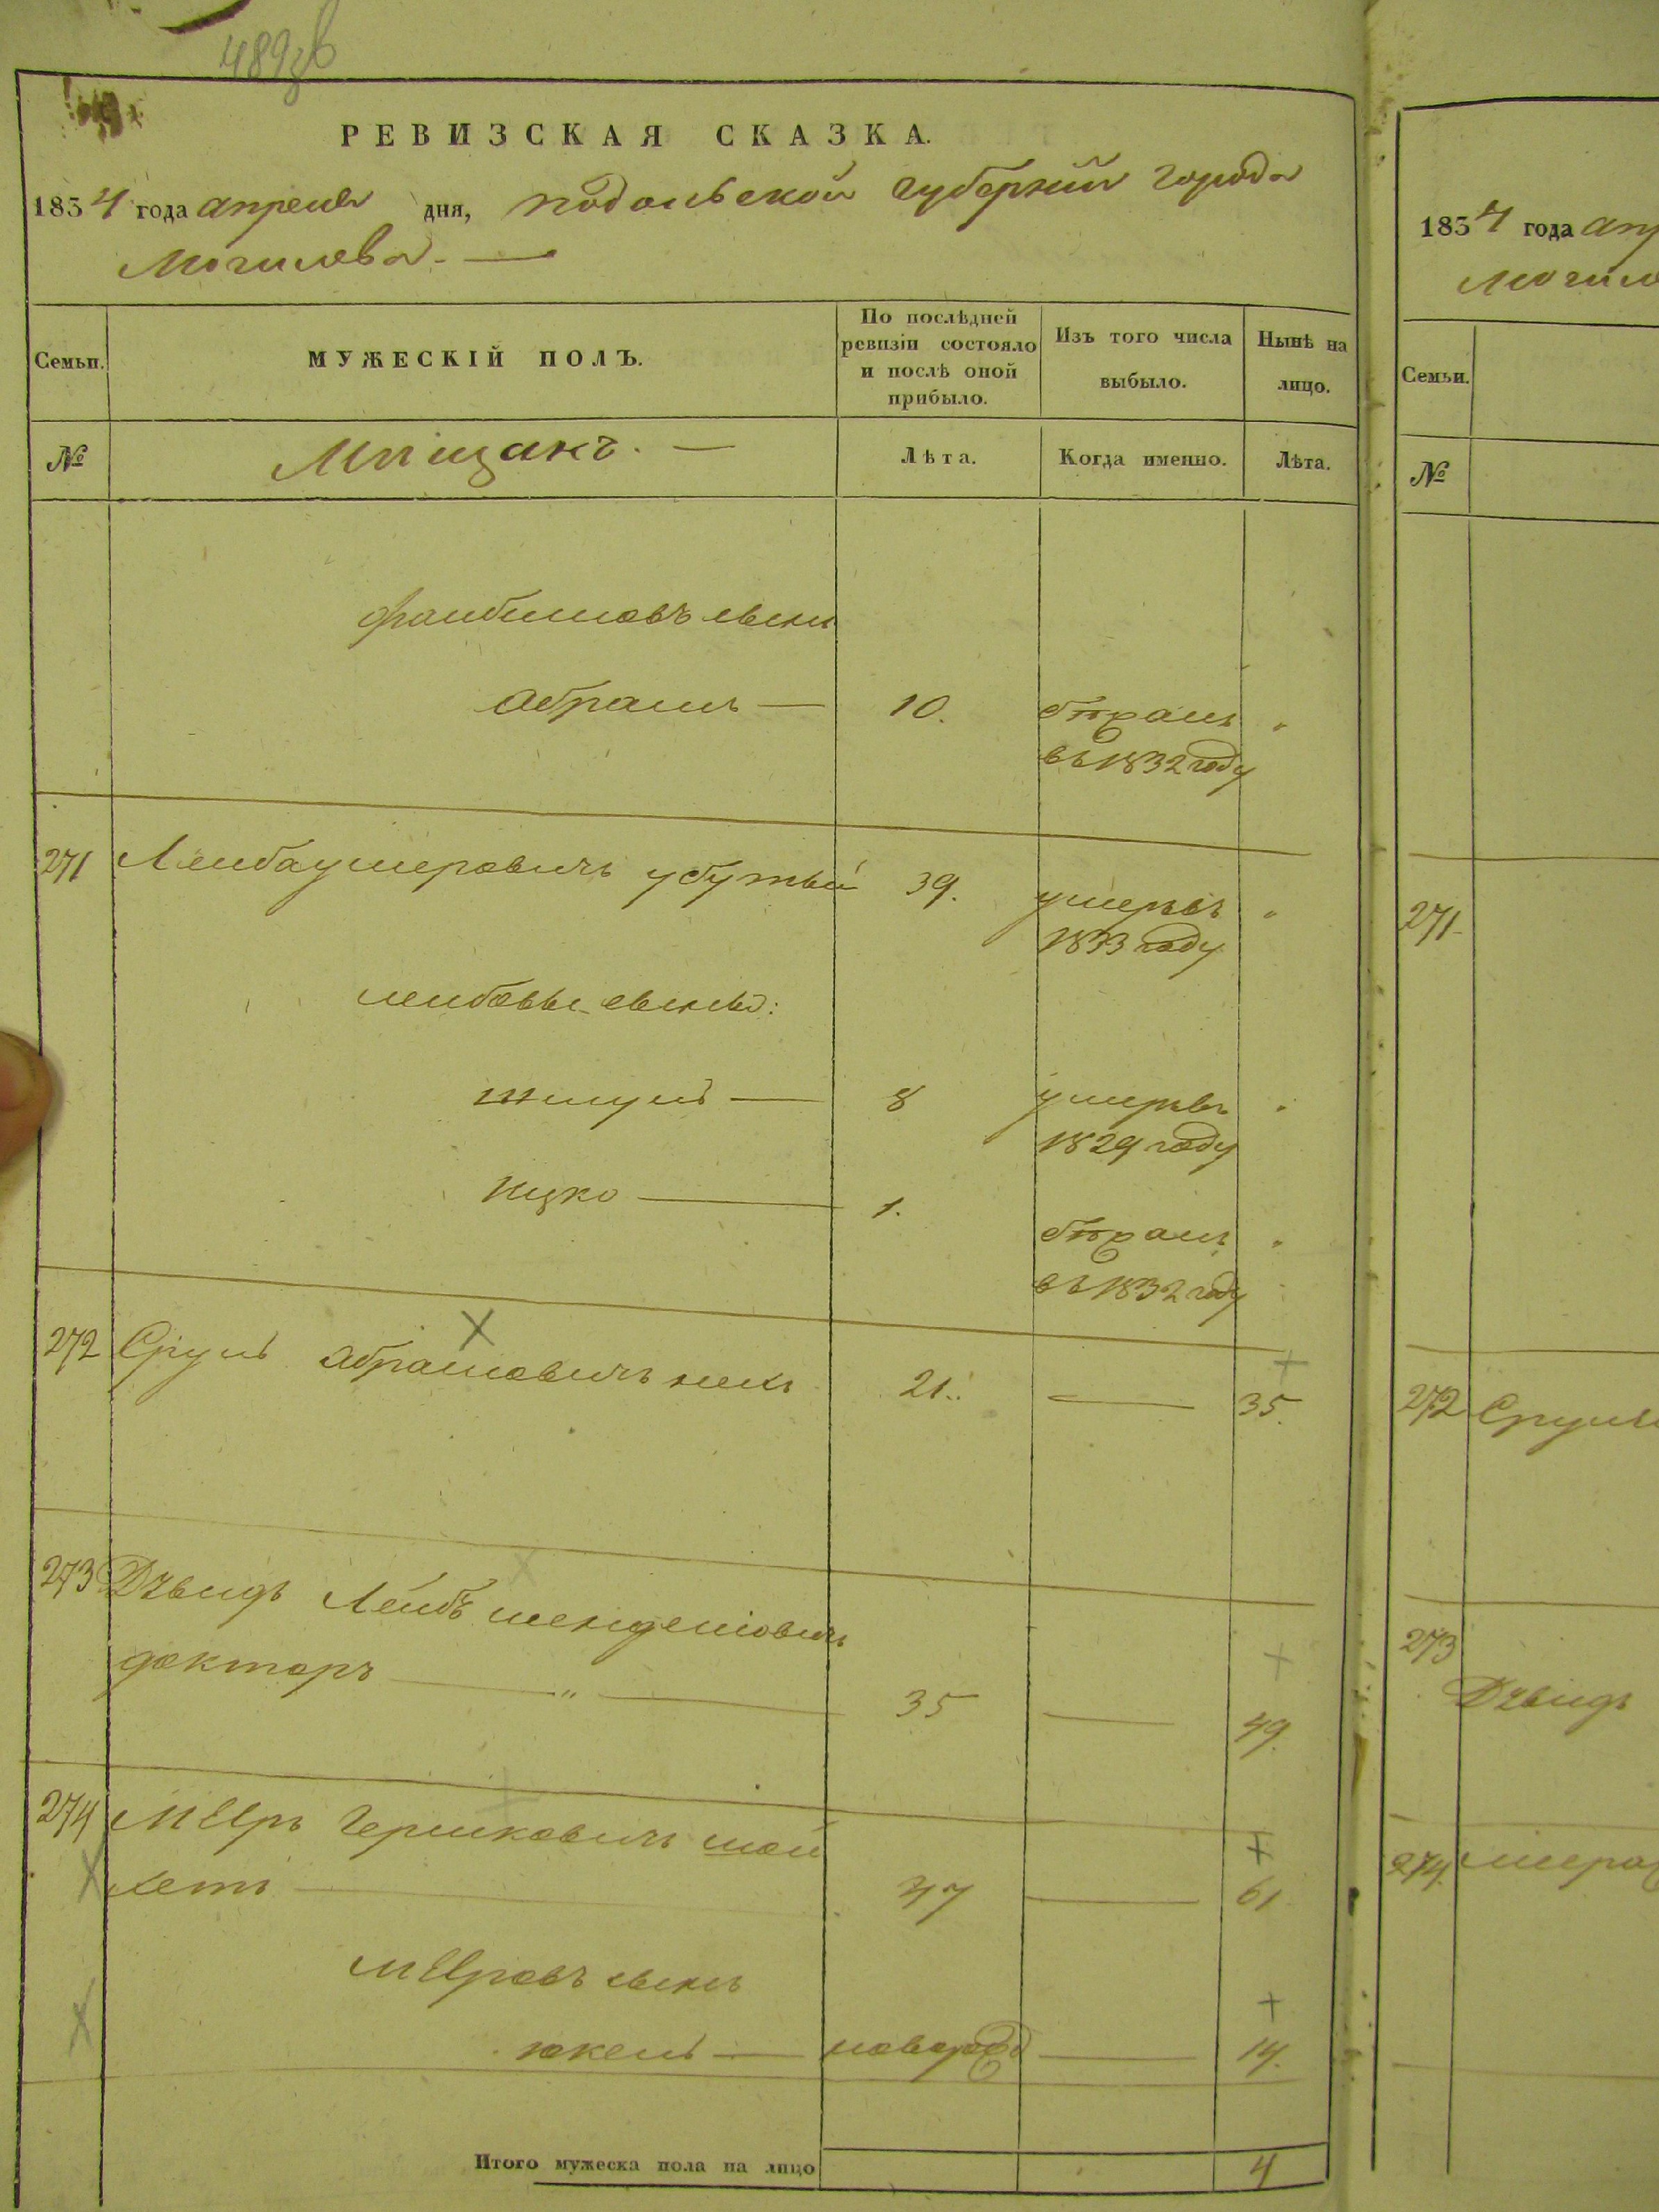 489 зв
РЕВИЗСКАЯ СКАЗКА.
1834 года апреля дня, подольской губернии города
Могилева. —
Семьи.
МУЖЕСКІЙ ПОЛЪ.
По послѣдней ревизіи состояло и послѣ оной прибыло.
Изъ того числа выбыло.
Нынѣ на лицо.
№
Мѣщанъ. —
Лѣта.
Когда именно.
Лѣта.
сынъ
Абрамъ — 10.
въ 1832 году
271 Лейба 39. умеръ въ
1833 году
лейбовы сыны:
8 умеръ въ
1829 году
Ицко — 1.
въ 1832 году
272 Срулъ Абрамовичъ 21. — 35.
273 Дувидъ Лейбъ менделовичъ
докторъ — " — 35 — 49.
274 Меръ Гершковичъ шой
хетъ — 47 — 61
Меровъ сынъ
юкель — новорож — 14.
Итого мужеска пола на лицо 4
1834 года апр
Могиле
Семьи.
№
271
272 Срул
273
Дувидъ
274.